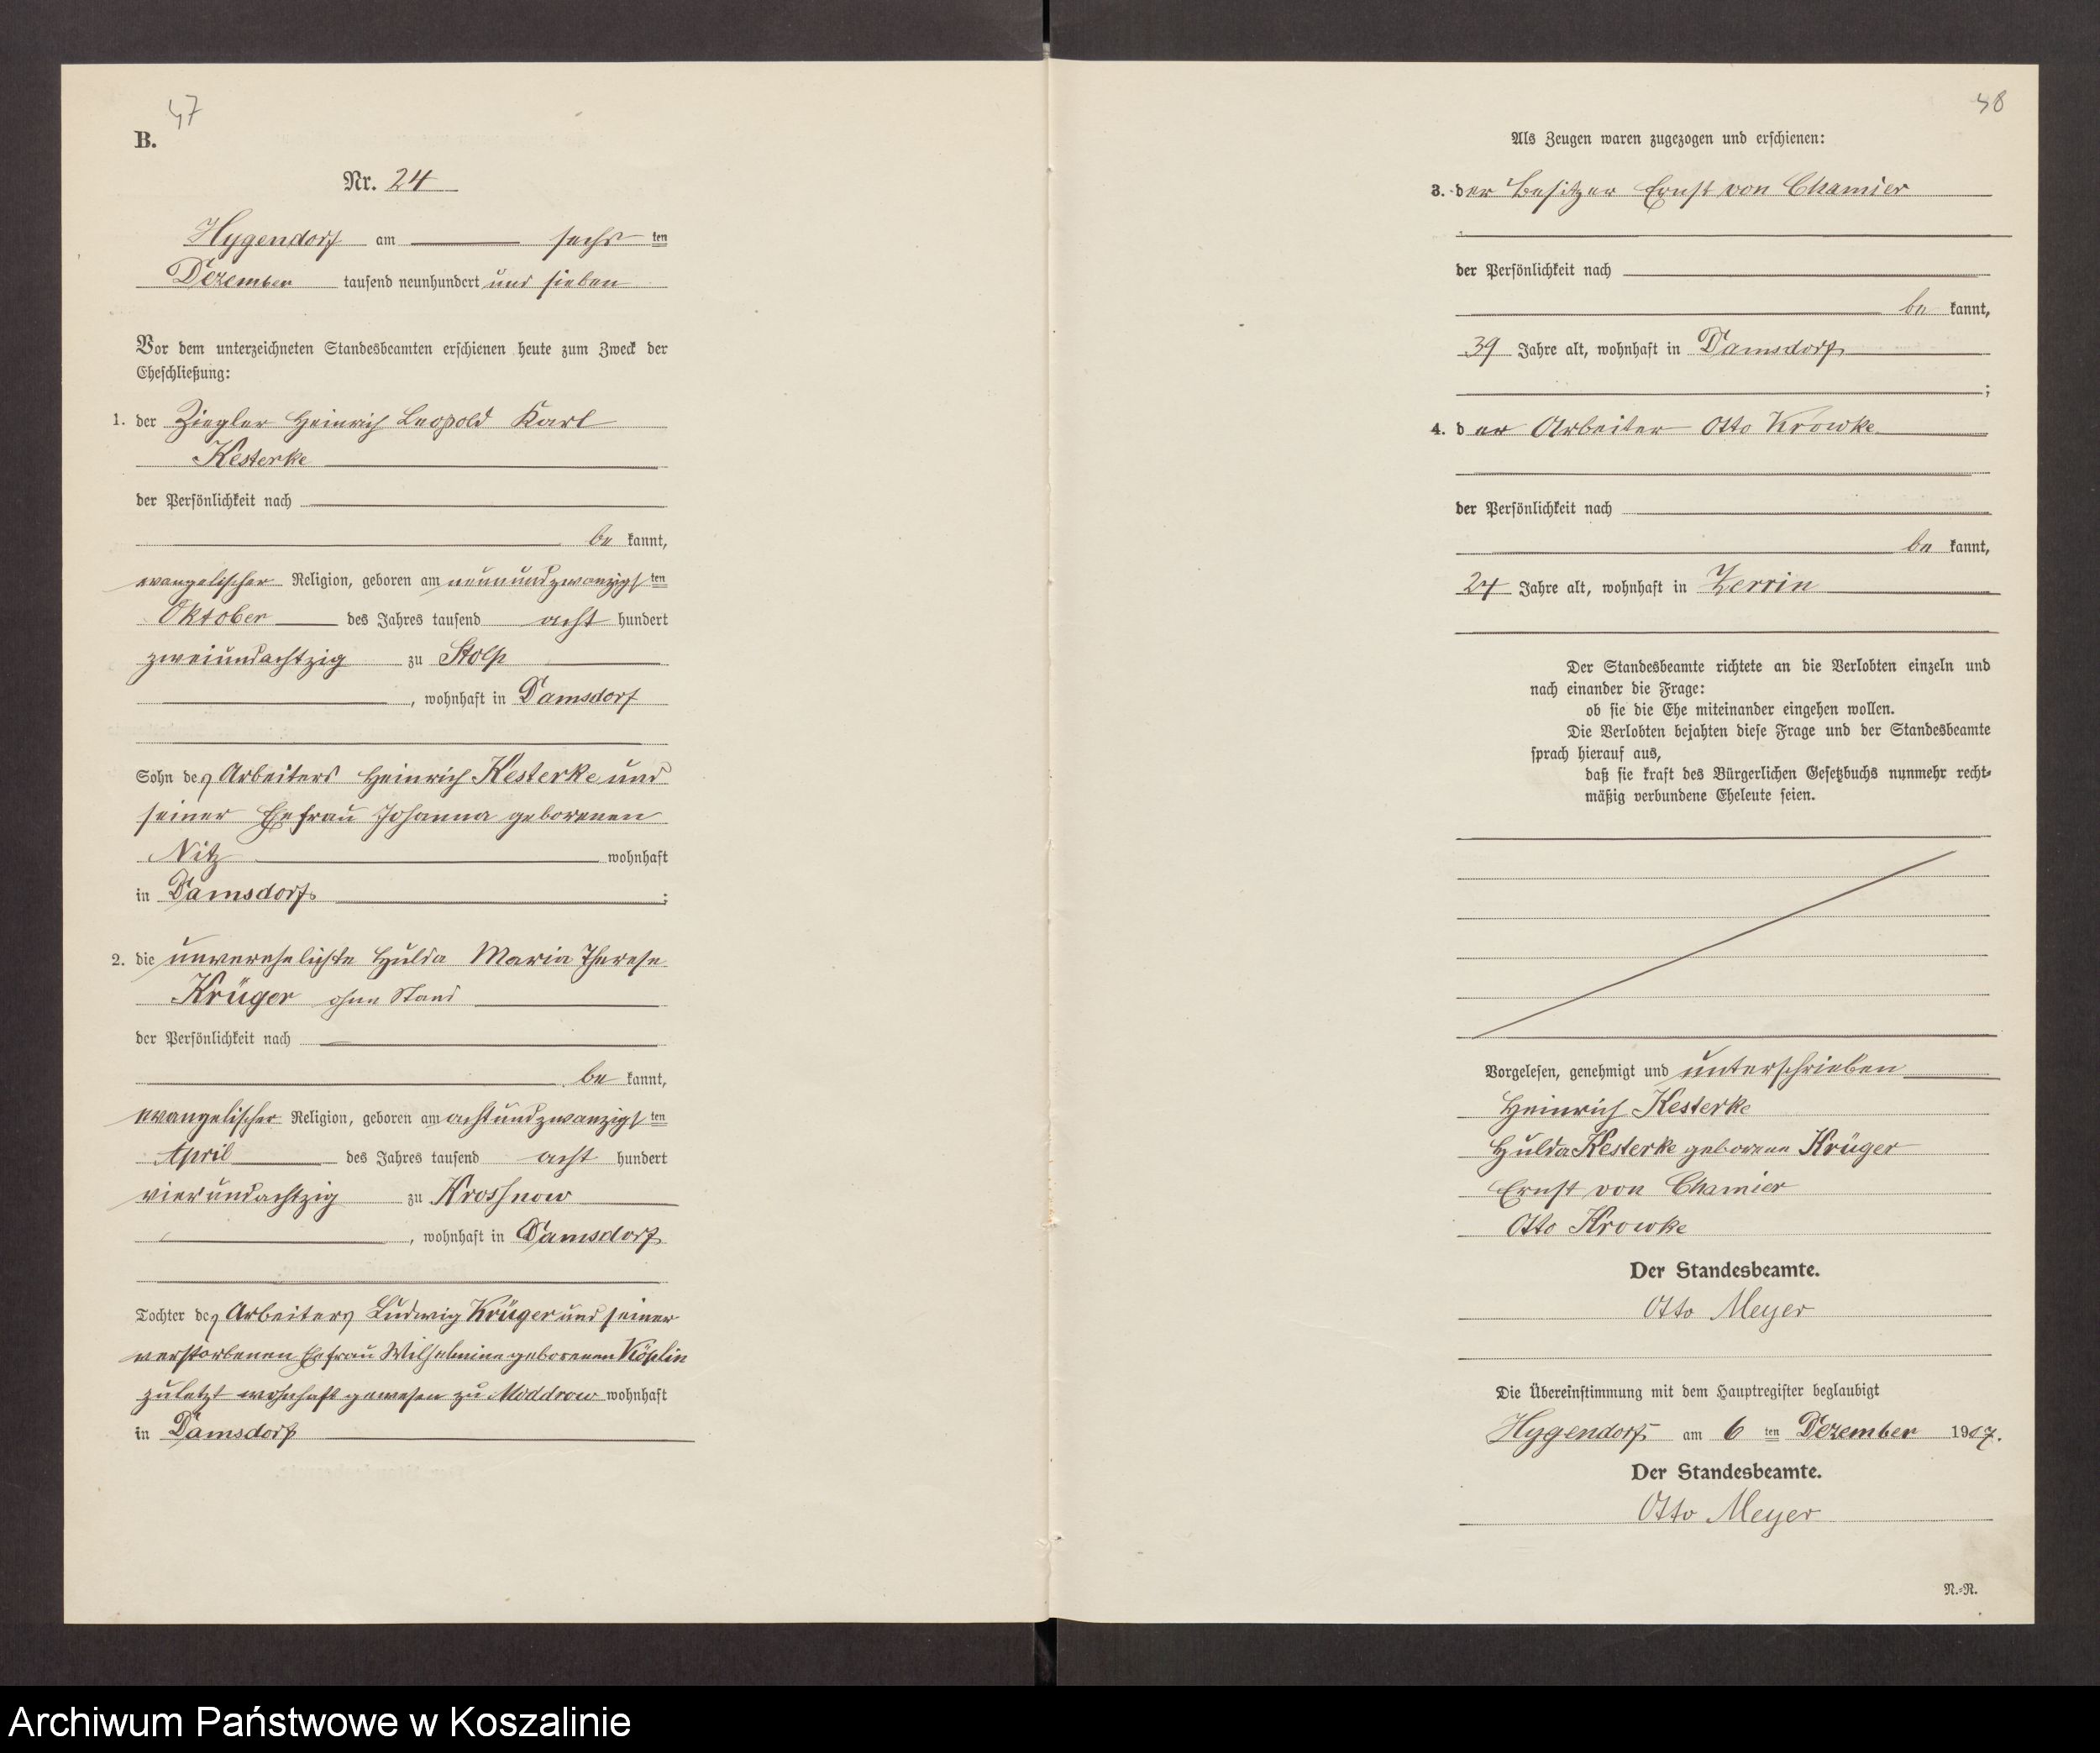 47
B.
Nr. 24
Hygendorf am sechsten
Dezember tausend neunhundert und sieben
Vor dem unterzeichneten Standesbeamten erschienen heute zum Zweck der
Eheschließung:
1. der Ziegler Heinrich Leopold Karl
Kesterke
der Persönlichkeit nach
be kannt,
evangelischer Religion, geboren am neunundzwanzigsten
Oktober des Jahres tausend acht hundert
zweiundachtzig zu Stolp
, wohnhaft in Damsdorf
Sohn des Arbeiters Heinrich Kesterke und
seiner Ehefrau Johanna geborenen
Nitz wohnhaft
in Damsdorf ;
2. die unverehelichte Hulda Maria Therese
Krüger ohne Stand
der Persönlichkeit nach
be kannt,
evangelischer Religion, geboren am achtundzwanzigsten
April des Jahres tausend acht hundert
vierundachtzig zu Krossnow
, wohnhaft in Damsdorf
Tochter des Arbeiters Ludwig Krüger und seiner
verstorbenen Ehefrau Wilhelmine geborenen Köplin
zuletzt wohnhaft gewesen zu Moddrow wohnhaft
in Damsdorf
48
Als Zeugen waren zugezogen und erschienen:
3. der Besitzer Ernst von Chamier
der Persönlichkeit nach
be kannt,
39 Jahre alt, wohnhaft in Damsdorf
;
4. der Arbeiter Otto Krowke
der Persönlichkeit nach
be kannt,
24 Jahre alt, wohnhaft in Zerrin
Der Standesbeamte richtete an die Verlobten einzeln und
nach einander die Frage:
ob sie die Ehe miteinander eingehen wollen.
Die Verlobten bejahten diese Frage und der Standesbeamte
sprach hierauf aus,
daß sie kraft des Bürgerlichen Gesetzbuchs nunmehr recht-
mäßig verbundene Eheleute seien.
Vorgelesen, genehmigt und unterschrieben
Heinrich Kesterke
Hulda Kesterke geborene Krüger
Ernst von Chamier
Otto Krowke
Der Standesbeamte.
Otto Meyer
Die Übereinstimmung mit dem Hauptregister beglaubigt
Hygendorf am 6 ten Dezember 1907.
Der Standesbeamte.
Otto Meyer
N.-R.
Archiwum Państwowe w Koszalinie